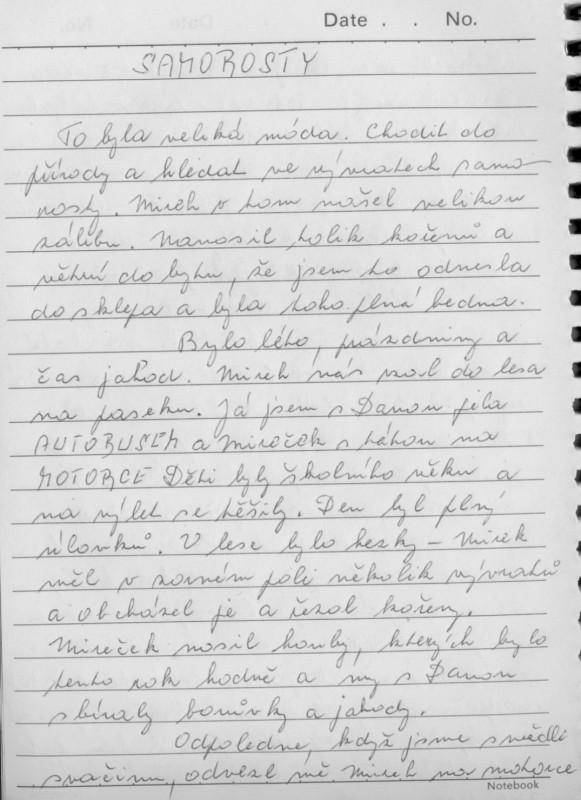 Date . . No.
SAMOROSTY
To byla veliká móda. Chodit do
přírody a hledat ve vývratech samo-
rosty. Mirek v tom našel velikou
zálibu. Nanosil tolik kořenů a
větví do bytu, že jsem to odnesla
do sklepa a byla toho plná bedna.
Bylo léto, prázdniny a
čas jahod. Mirek nás vzal do lesa
na paseku. Já jsem s Danou jela
AUTOBUSEM a Mireček s tátou na
MOTORCE Děti byly školního věku a
na výlet se těšily. Den byl plný
úlovků. V lese bylo hezky – Mirek
měl v zorném poli několik vývratů
a obcházel je a řezal kořeny.
Mireček nosil houby, kterých bylo
tento rok hodně a my s Danou
sbíraly borůvky a jahody.
Odpoledne, když jsme snědli
svačinu, odvezl mě Mirek na motorce
Notebook